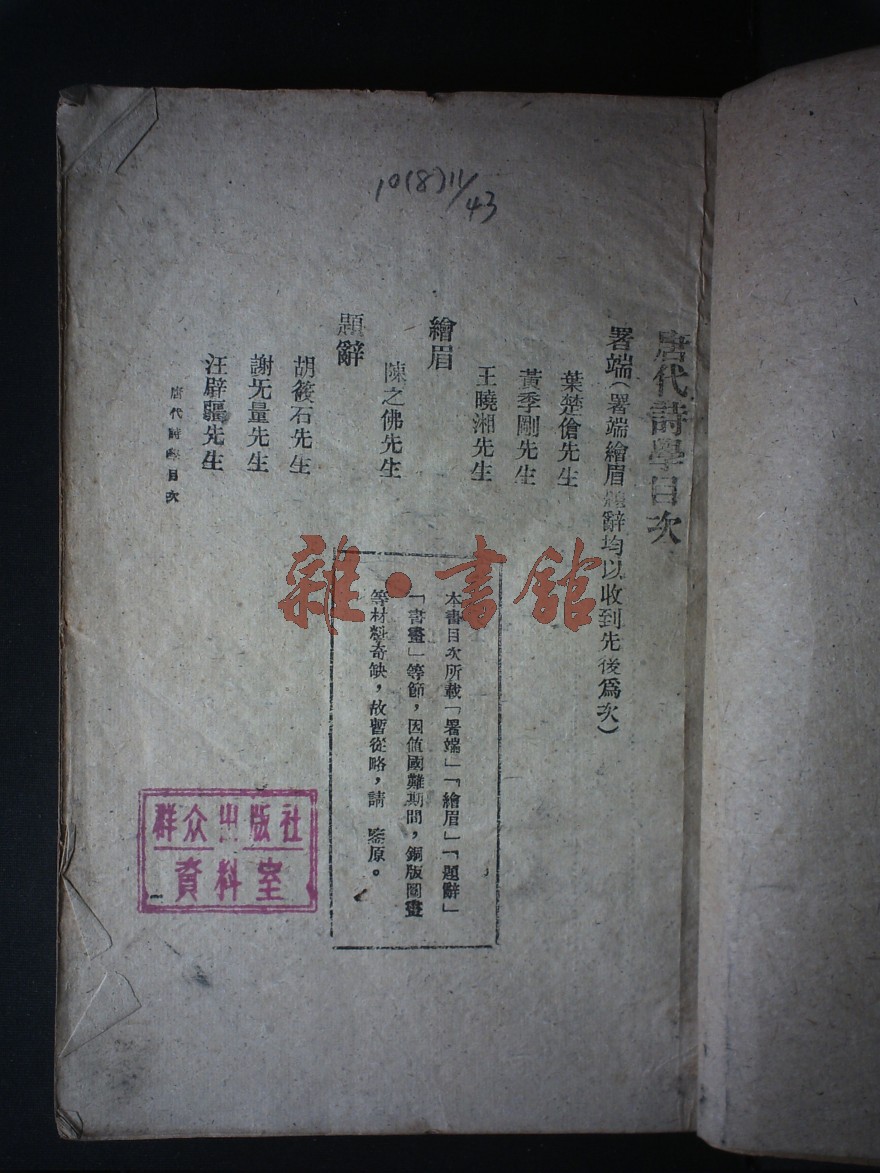 10(8)11/43
唐代詩學目次
署端(署端繪眉題辭均以收到先後爲次)
葉楚傖先生
黃季剛先生
王曉湘先生
繪眉
陳之佛先生
題辭
胡筱石先生
謝无量先生
汪辟疆先生
唐代詩學目次
本書目次所載「署端」「繪眉」「題辭」
「書畫」等節,因值國難期間,銅版圖畫
等材料奇缺,故暫從略,請 鑒原。
雜·書館
群众出版社
資料室